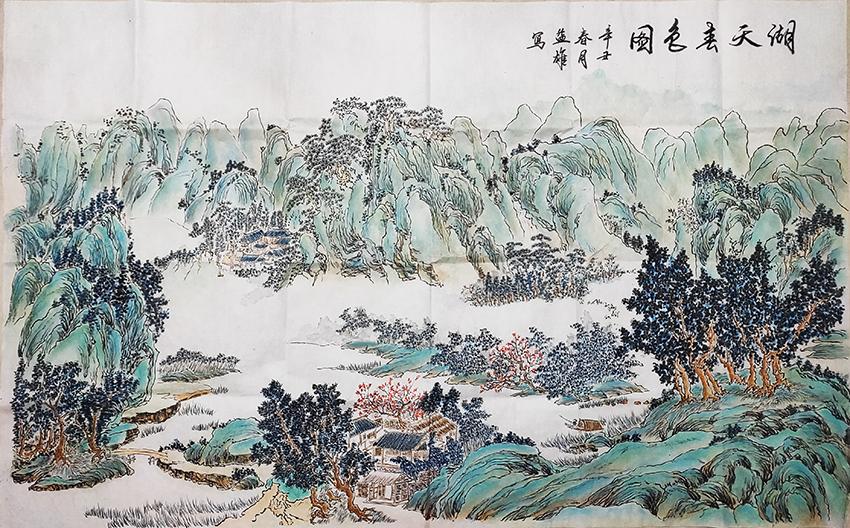 湖天春色图
辛丑
春月
孟雄
写